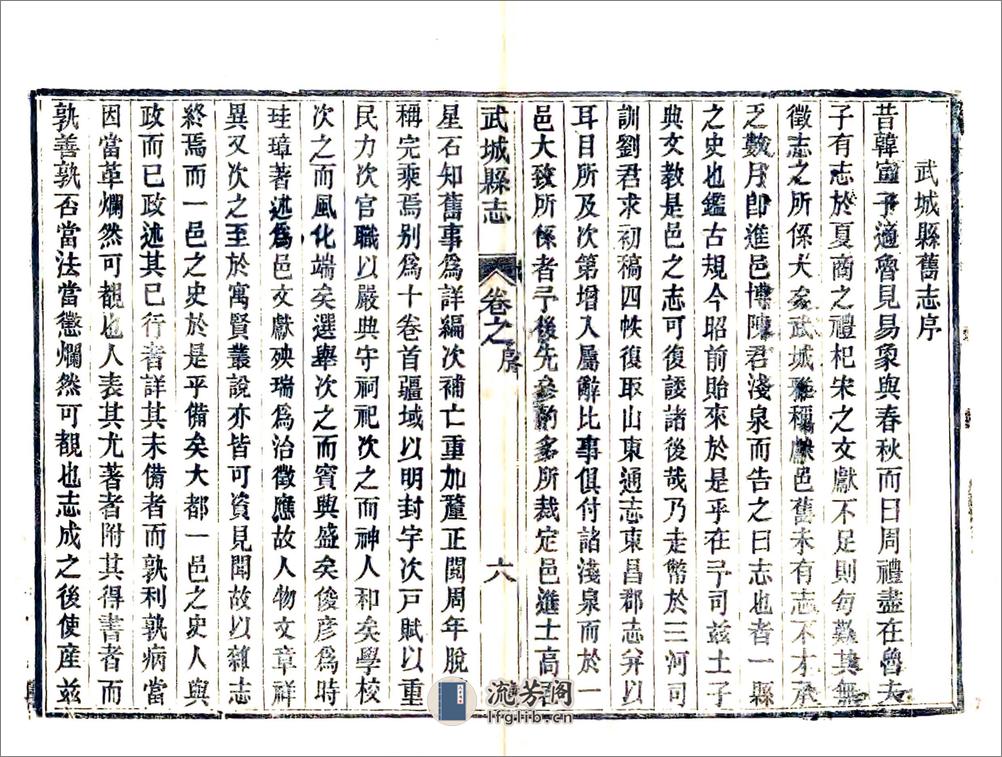 武城縣舊志序
昔韓宣子適魯見易象與春秋而曰周禮盡在魯夫
子有志於夏商之禮杞宋之文獻不足則每歎其無
徵志之所係大矣武城雖稱邑舊未有志不才承
乏數月卽進邑博陳君淺泉而告之曰志也者一縣
之史也鑑古規今昭前貽來於是乎在予司茲土子
典文教是邑之志可復諉諸後哉乃走幣於三河司
訓劉君求初稿四帙復取山東通志東昌郡志幷以
耳目所及次第增入屬辭比事俱付諸淺泉而於一
邑大致所係者予後先參酌多所裁定邑進士高君
武城縣志
卷之序
六
星石知舊事爲詳編次補亡重加釐正閱周年脫
稱完乘焉别爲十卷首疆域以明封守次戸賦以重
民力次官職以嚴典守祠祀次之而神人和矣學校
次之而風化端矣選舉次之而賓興盛矣俊彦爲時
珪璋著述爲邑文獻殃瑞爲治徵應故人物文章祥
異又次之至於寓賢叢說亦皆可資見聞故以雜志
終焉而一邑之史於是乎備矣大都一邑之史人與
政而已政述其已行者詳其未備者而孰利孰病當
因當革爛然可覩也人表其尤著者附其得書者而
孰善孰否當法當懲爛然可覩也志成之後使産茲
流芳阁
lfglib.cn